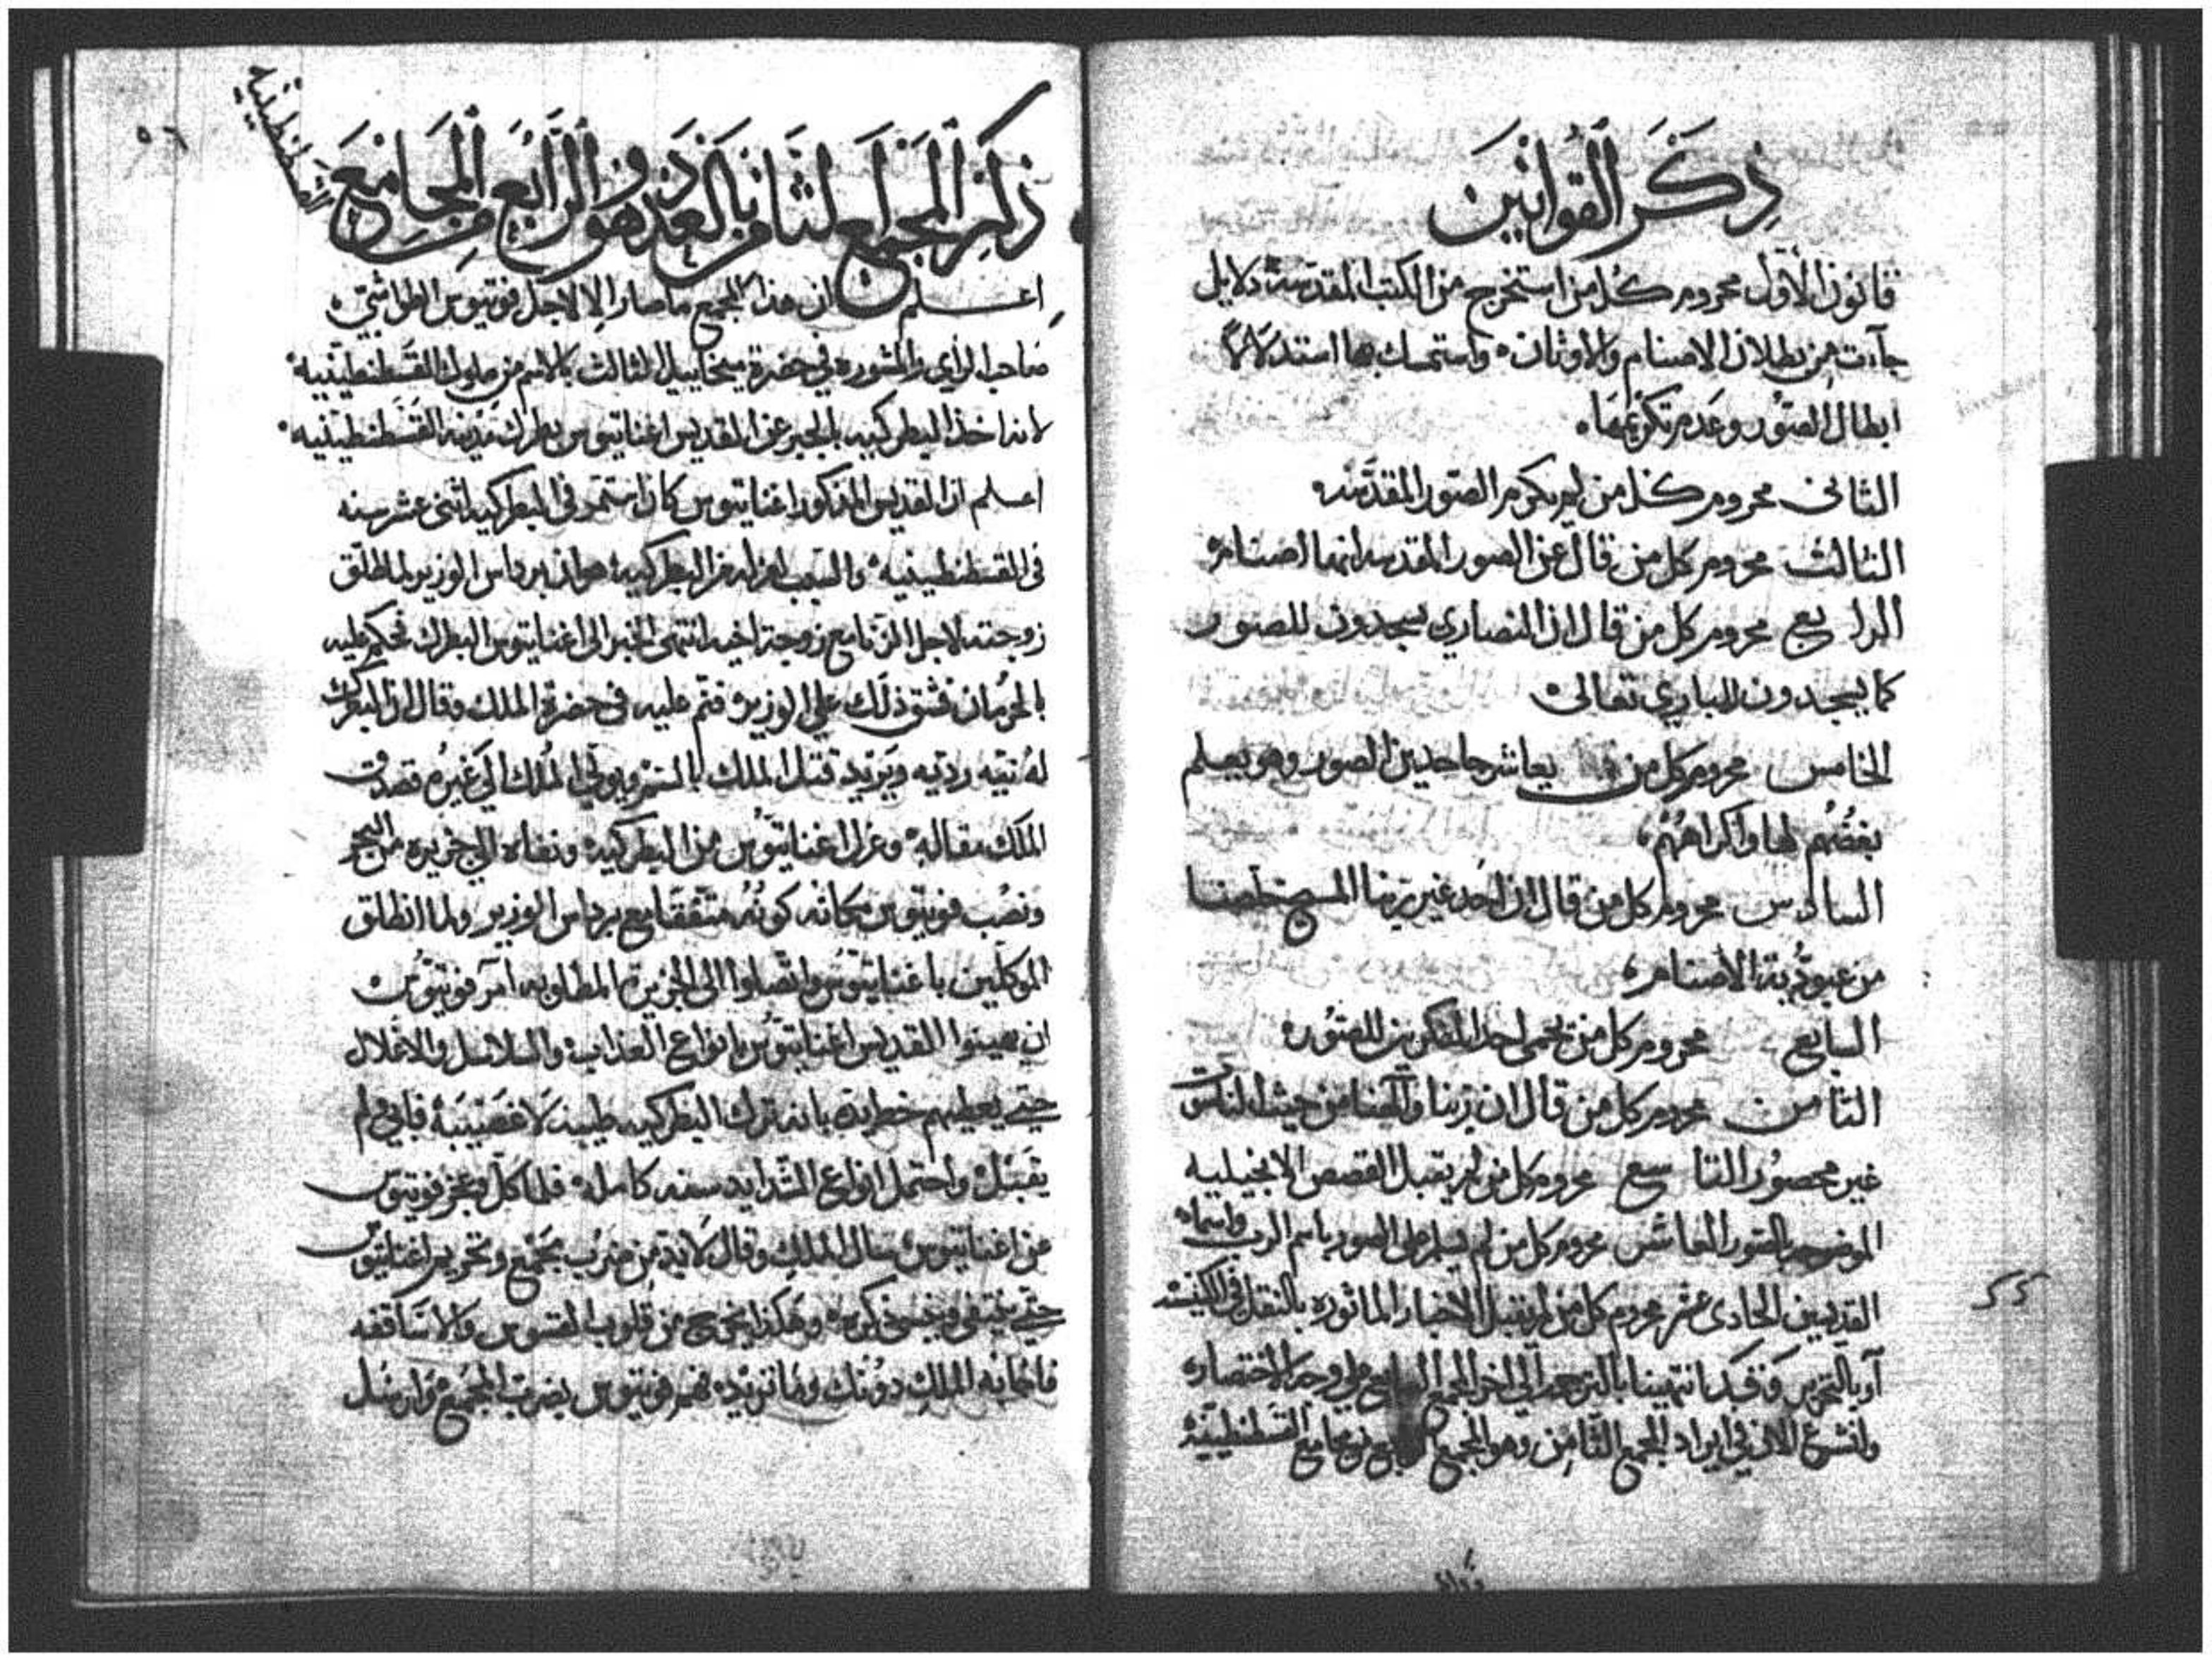 ذِكَر القوانين
قانون الأول محروم كل من استخرج من الكتب المقدسة دلايل
جآت من بطلان الاصنام والاوثان واستمسك بها استدلالًا
ابطال الصور وعدم تكريمها
الثاني محروم كل من لم يكرم الصور المقدسة
الثالث محروم كل من قال عن الصور المقدسه انها اصنام
الرابع محروم كل من قال ان النصاري يسجدون للصور
كما يسجدون للباري تعالى
الخامس محروم كل من يعاشر جاحدين الصور وهو يعلم
بغضهم لها واكراههم
السادس محروم كل من قال ان احد غير ربنا المسيح خلصنا
من عبودية الاصنام
السابع محروم كل من يحمي احد المنكرين الصور
الثامن محروم كل من قال ان ربنا والهنا من حيث الناسوت
غير محصور التاسع محروم كل من لم يقبل القصص الانجيليه
الموضوعه بالصور العاشر محروم كل من لم يسلم على الصور باسم الرب واسماء
القديسين الحادى عشر محروم كل من لم يقبل الاخبار الماثوره بالنقل في الكنيسه
او بالتحرير وقد انتهينا بالترجمة الي اخر المجمع السابع على وجه الاختصار
ولنشرع الان في ايراد المجمع الثامن وهو المجمع الرابع من مجامع القسطنطينية
55
٥٦
ذكر المجمع الثامن بالعدد وهو الرابع من المجامع
القسطنطينية
اعلم ان هذا المجمع ما صار الا لاجل فوتيوس الطواشي
صاحب الراي والمشوره في حضرة ميخاييل الثالث بالاسم من ملوك القسطنطينيه
لانه اخذ البطركيه بالجبر عن القديس اغناتيوس بطرك مدينة القسطنطينيه
اعلم ان القديس المذكور اغناتيوس كان استمر في البطركيه اثنى عشر سنه
في القسطنطينيه والسبب لعزله من البطركيه هو ان برداس الوزير لما طلق
زوجته لاجل الزنا مع زوجة اخيه انتهى الخبر الى اغناتيوس البطرك فحكم عليه
بالحرمان فشق ذلك علي الوزير فنم عليه في حضرة الملك وقال ان البطرك
له نيه رديه ويريد قتل الملك بالسم ويولي الملك الي غيره فصدق
الملك مقاله وعزل اغناتيوس من البطركيه ونفاه الي جزيره من البحر
ونصب فوتيوس مكانه كونه متفقا مع برداس الوزير ولما انطلق
الموكلين باغناتيوس واتصلوا الى الجزيرة المطلوبه امر فوتيوس
ان يهينوا القديس اغناتيوس بانواع العذاب والسلاسل والاغلال
حتى يعطيهم خط يده بانه ترك البطركيه طيبة لا غصيبة فابي ولم
يقبل واحتمل انواع الشدايد سنه كامله فلما كل وعجز فوتيوس
من اغناتيوس سال الملك وقال لابد من ضرب مجمع وتحريم اغناتيوس
حتى يختفي وينسى ذكره وهكذا يخرج من قلوب القسوس والاساقفه
فاجابه الملك دونك وما تريده فهم فوتيوس بضرب المجمع وارسل